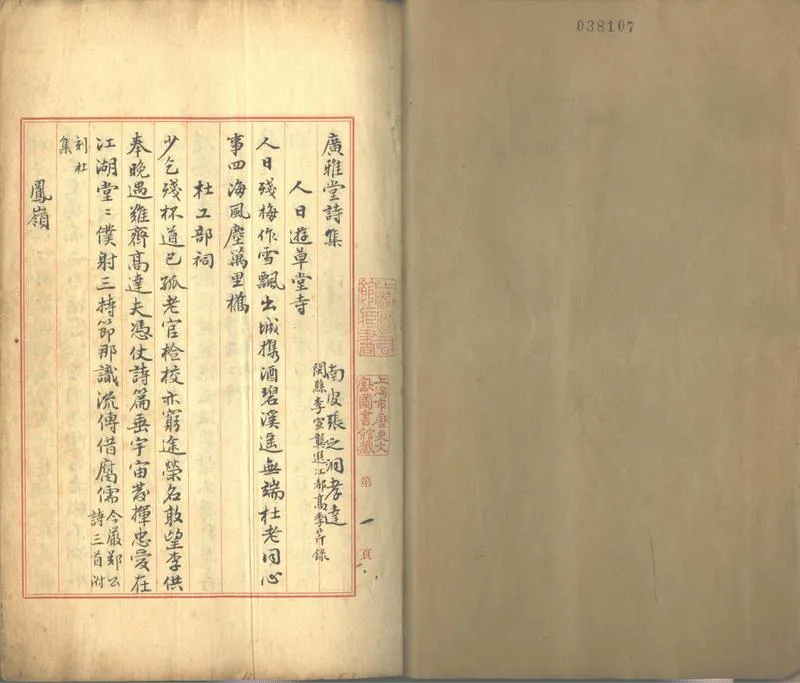 038107
廣雅堂詩集
南皮張之洞孝達
閩縣李宣龔選江都高季錄
人日遊草堂寺
人日殘梅作雪飄出城攜酒碧溪遥無端杜老同心
事四海風塵萬里橋
杜工部祠
少乞殘杯道已孤老官檢校亦窮途榮名敢望李供
奉晚遇難齊高達夫憑仗詩篇垂宇宙發揮忠愛在
江湖堂〻僕射三持節那識流傳借腐儒
今嚴鄭公
詩三首附
刻杜
集
鳳嶺
上海市歷史文
獻圖書館藏
第一頁